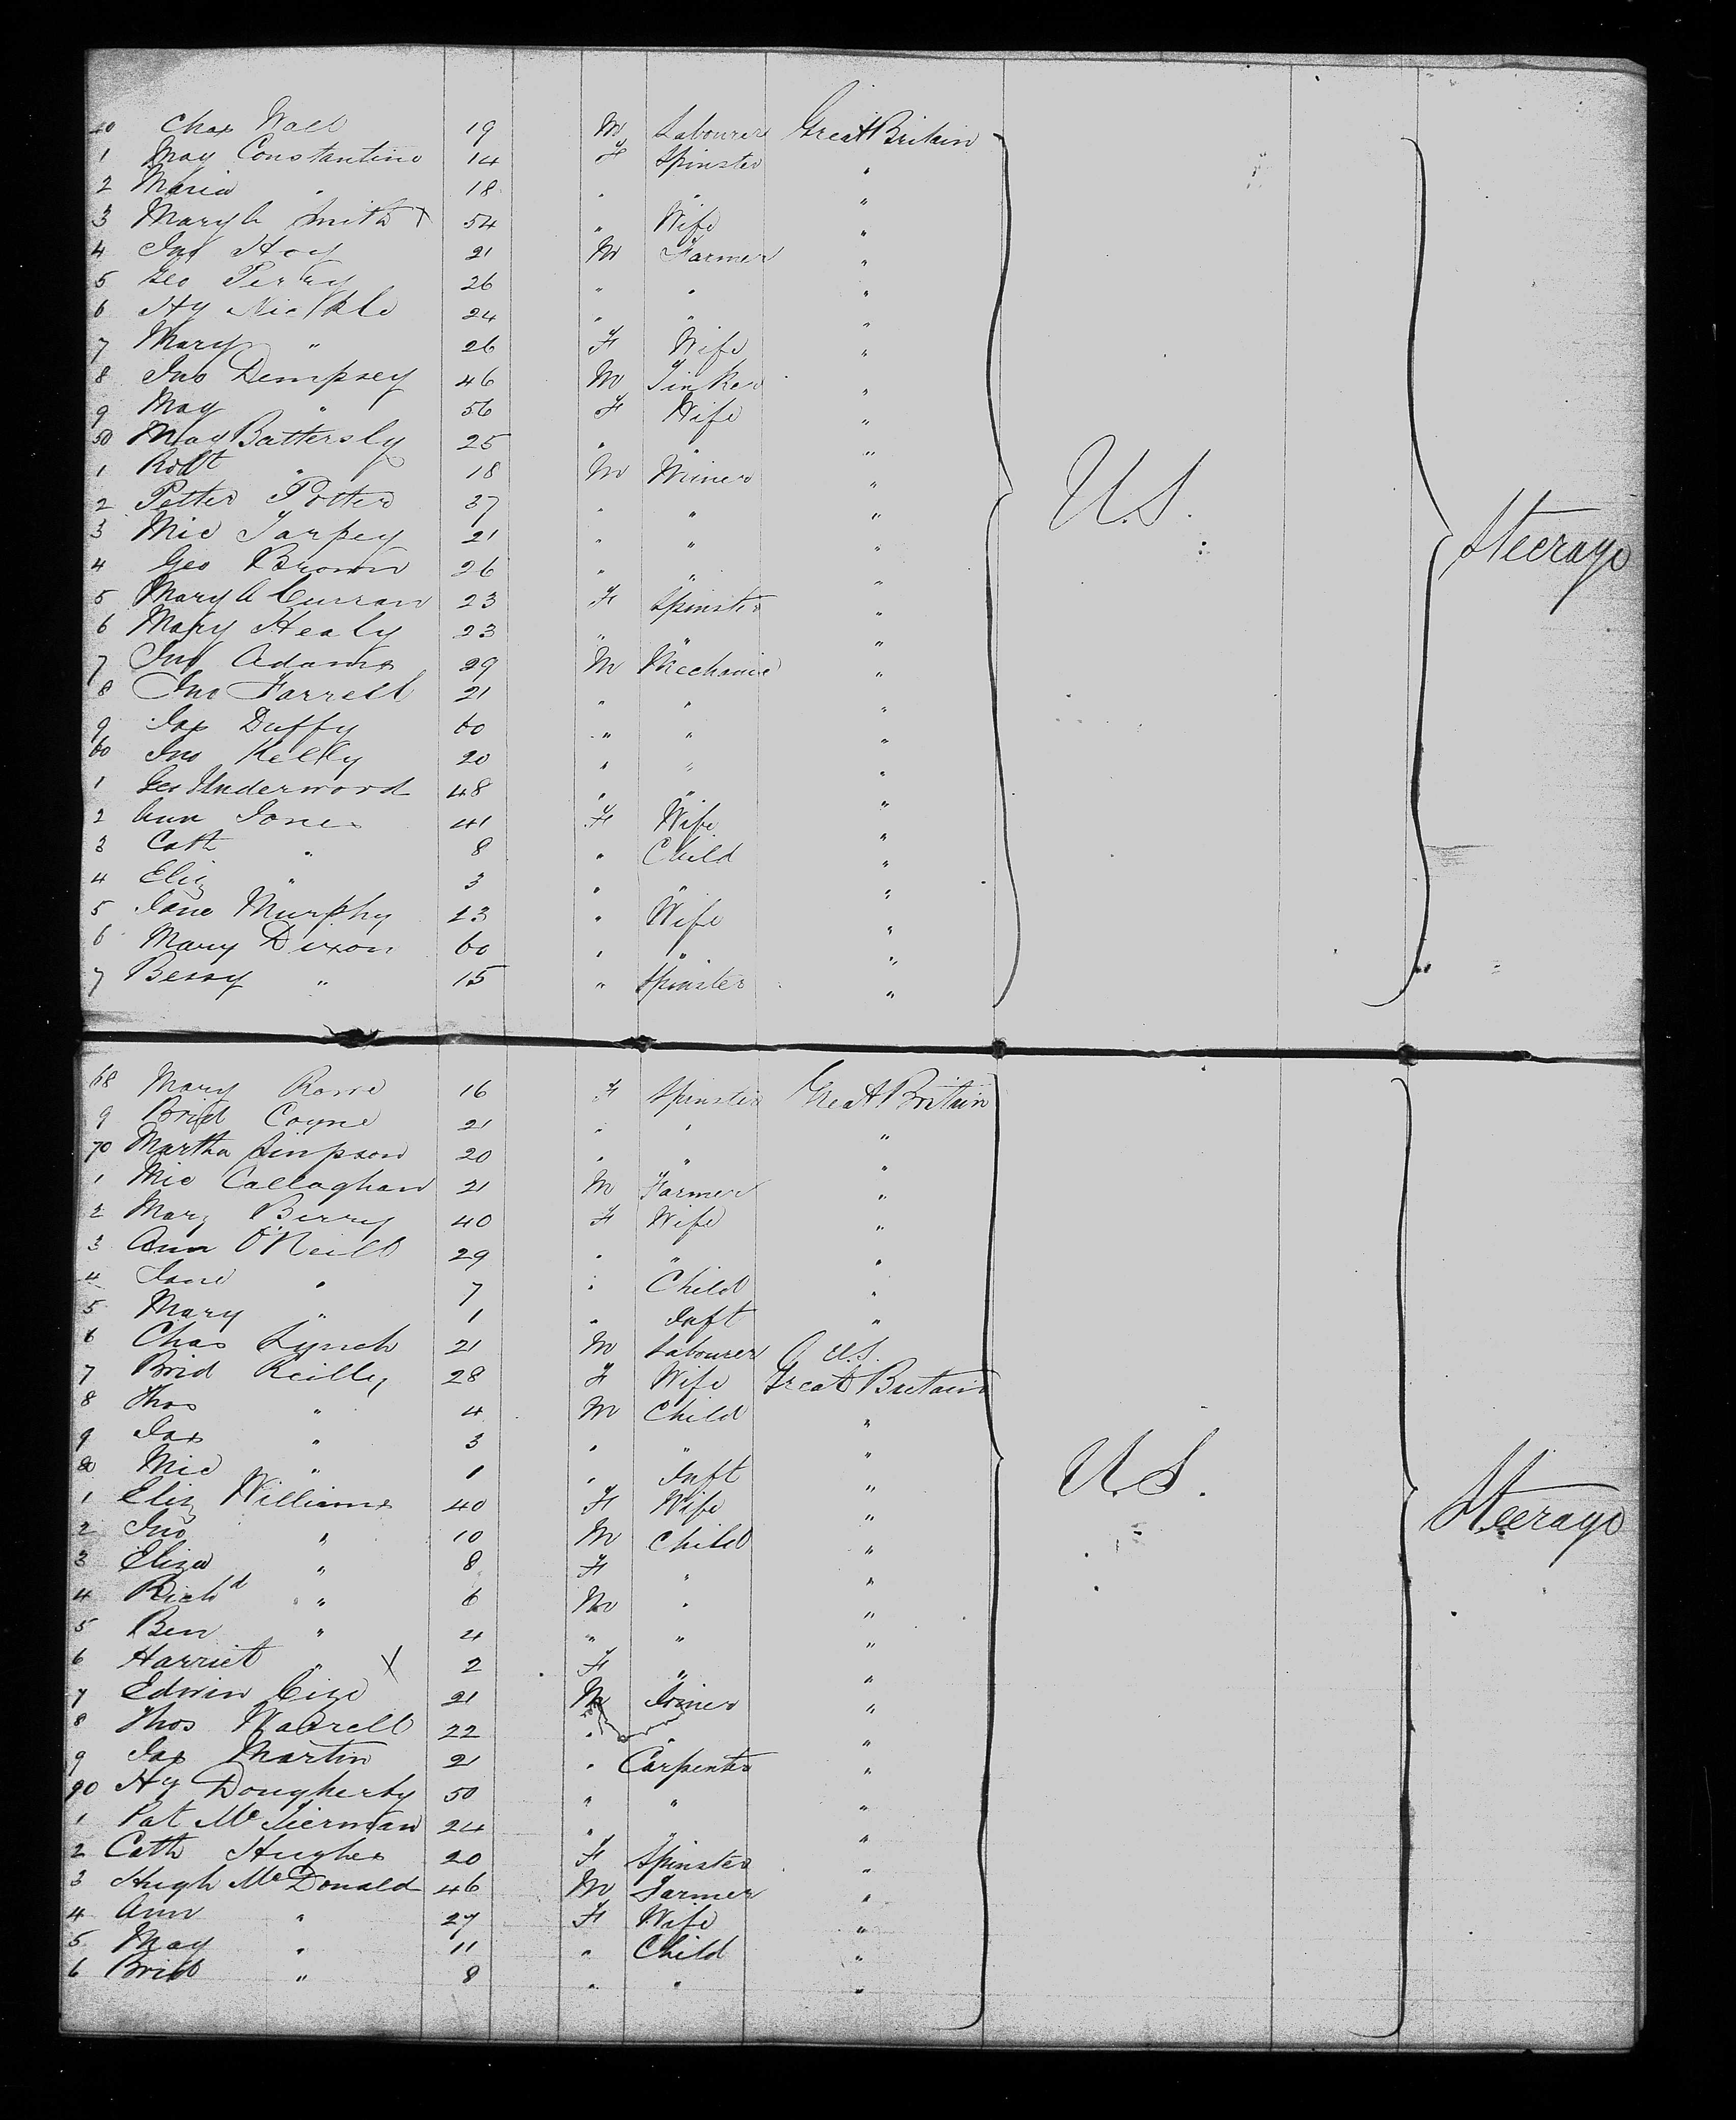 40 Chas Wall 19 M Labourer Great Britain
1 May Constantine 14 F Spinster "
2 Maria " 18 " " "
3 Mary A Smith X 54 " Wife "
4 Jno Hoy 21 M Farmer "
5 Geo Perry 26 " " "
6 Hy Nickle 24 " " "
7 Mary " 26 F Wife "
8 Jno Dempsey 46 M Tinker "
9 May " 56 F Wife "
50 May Battersby 25 " " "
1 Robt " 18 M Miner "
U.S.
2 Petter Potter 37 " " "
3 Mic Tarpey 21 " " "
Steerage
4 Geo Brown 26 " " "
5 Mary A Curran 23 F Spinster "
6 Mary Healy 23 " " "
7 Jno Adams 29 M Mechanic "
8 Jno Farrell 21 " " "
9 Jas Duffy 60 " " "
60 Jno Kelly 20 " " "
1 Geo Underwood 48 " " "
2 Ann Jones 41 F Wife "
3 Cath " 8 " Child "
4 Eliz " 3 " " "
5 Jane Murphy 23 " Wife "
6 Mary Dixon 60 " " "
7 Bessy " 15 " Spinster "
68 Mary Rowe 16 F Spinster Great Britain
9 Bridt Coyne 21 " " "
70 Martha Simpson 20 " " "
1 Mic Callaghan 21 M Farmer "
2 Mary Berry 40 F Wife "
3 Ann O'Neill 29 " " "
4 Jane " 7 " Child "
5 Mary " 1 " Inft "
6 Chas Lynch 21 M Labourer U.S.
7 Brid Reilly 28 F Wife Great Britain
8 Thos " 4 M Child "
9 Jas " 3 " " "
80 Mic " 1 " Inft "
U.S.
1 Eliz Williams 40 F Wife "
2 Jno " 10 M Child "
Steerage
3 Eliza " 8 F " "
4 Richd " 6 M " "
5 Ben " 4 " " "
6 Harriet " X 2 F " "
7 Edwin 21 M Joiner "
8 Thos 22 " " "
9 Jas Martin 21 " Carpenter "
90 Hy Dougherty 50 " " "
1 Pat McTiernan 24 " " "
2 Cath Hughes 20 F Spinster "
3 Hugh McDonald 46 M Farmer "
4 Ann " 27 F Wife "
5 May " 11 " Child "
6 Brid " 8 " " "